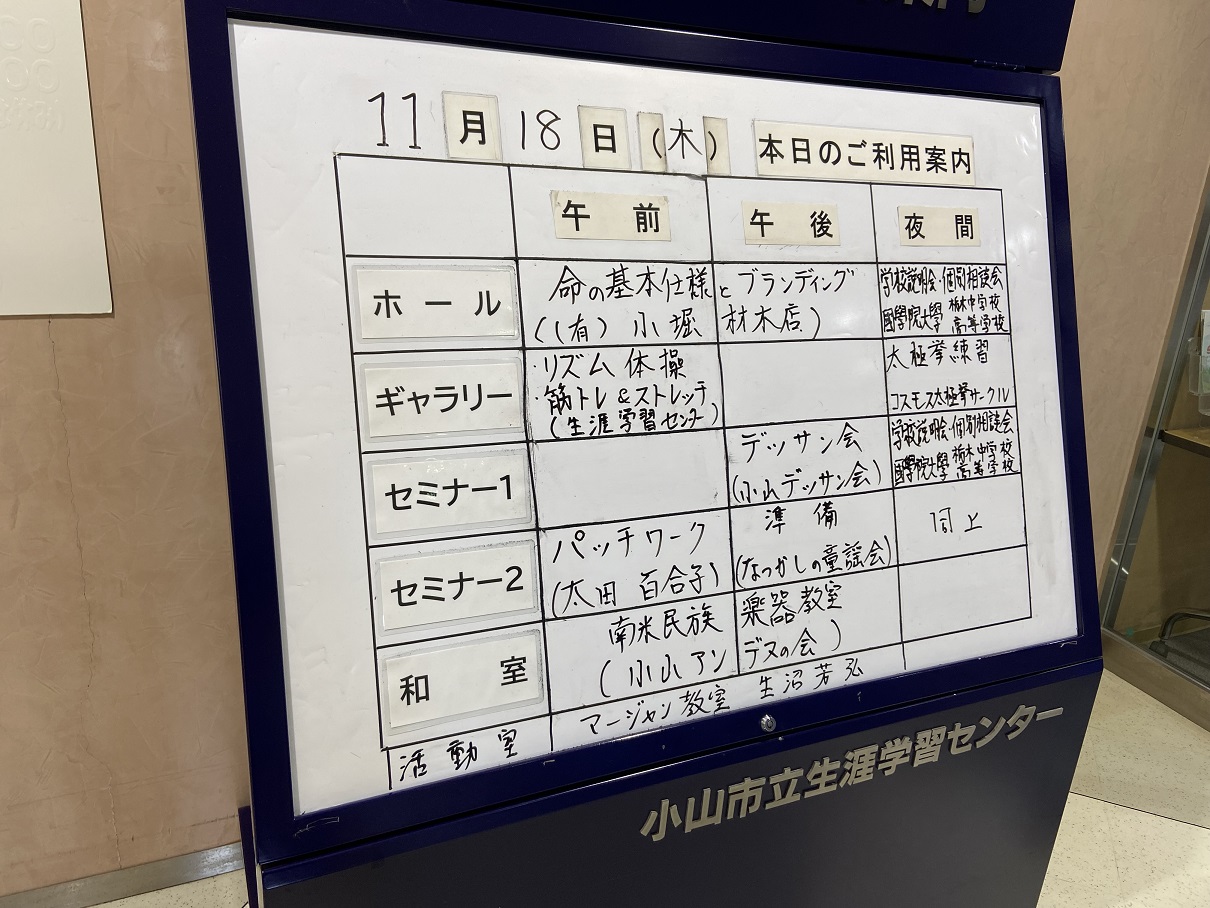 11月18日(木) 本日のご利用案内
午前 午後 夜間
ホール
命の基本仕様とブランディング
((有)小堀材木店)
学校説明会・個別相談会
國學院大學 栃木中学校
高等学校
ギャラリー
・リズム体操
・筋トレ&ストレッチ
(生涯学習センター)
太極拳練習
コスモス太極拳サークル
セミナー1
デッサン会
(小山デッサン会)
学校説明会・個別相談会
國學院大學 栃木中学校
高等学校
セミナー2
パッチワーク
(太田 百合子)
準備
(なつかしの童謡会)
同上
和室
南米民族楽器教室
(小山アンデスの会)
活動室
マージャン教室 生沼芳弘
小山市立生涯学習センター